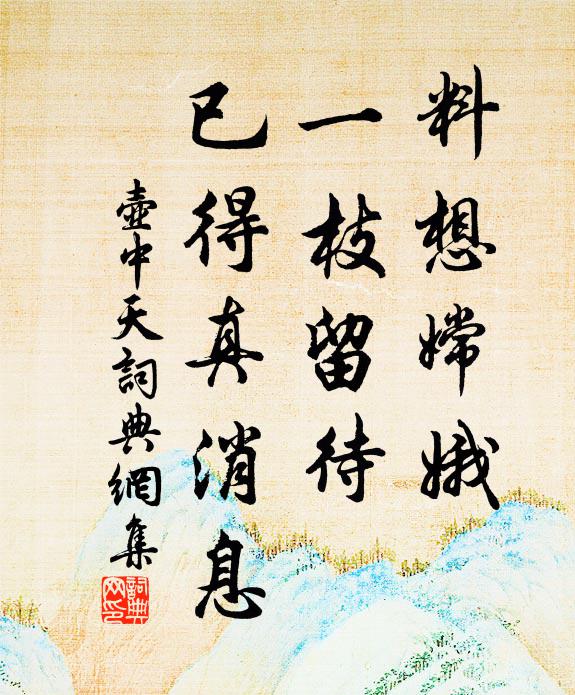 料想嫦娥
一枝留待
已得真消息
壺中天詞典網集
詞典網印